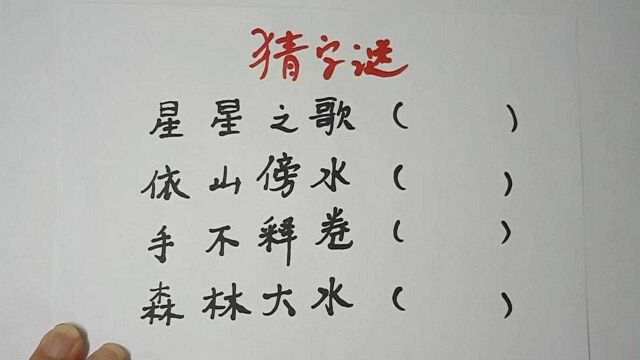 猜字谜
星星之歌（　　）
依山傍水（　　）
手不释卷（　　）
森林大水（　　）